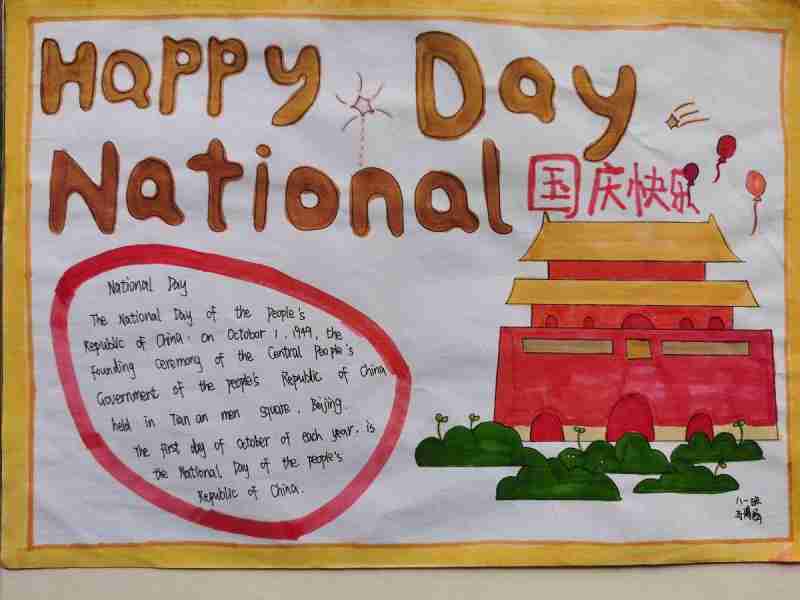 Happy Day
National
国庆快乐
National Day
The National Day of the People's
Republic of China. on October 1, 1949, the
founding ceremony of the Central People's
Government of the people's Republic of China
held in Tian an men square, Beijing.
The first day of october of each year, is
the National Day of the people's
Republic of China.
八一班